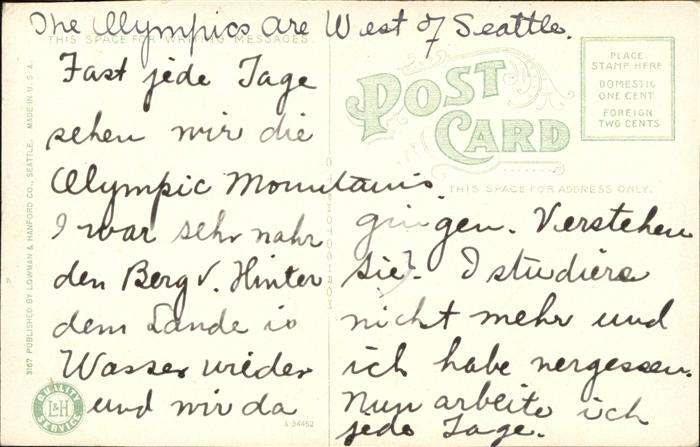 The Olympics are West of Seattle.
THIS SPACE FOR WRITING MESSAGES.
Fast jede Tage
sehen wir die
Olympic Mountains.
I war sehr nahr
den Berg v. Hinter
dem Lande is
Wasser wieder
und wir da
gingen. Verstehen
sie? I studiere
nicht mehr und
ich habe vergessen.
Nun arbeite ich
jede Tage.
POST
CARD
THIS SPACE FOR ADDRESS ONLY.
PLACE
STAMP HERE
DOMESTIC
ONE CENT
FOREIGN
TWO CENTS
3167 PUBLISHED BY LOWMAN & HANFORD CO., SEATTLE. MADE IN U.S.A.
QUALITY
L&H
SERVICE
A-34452